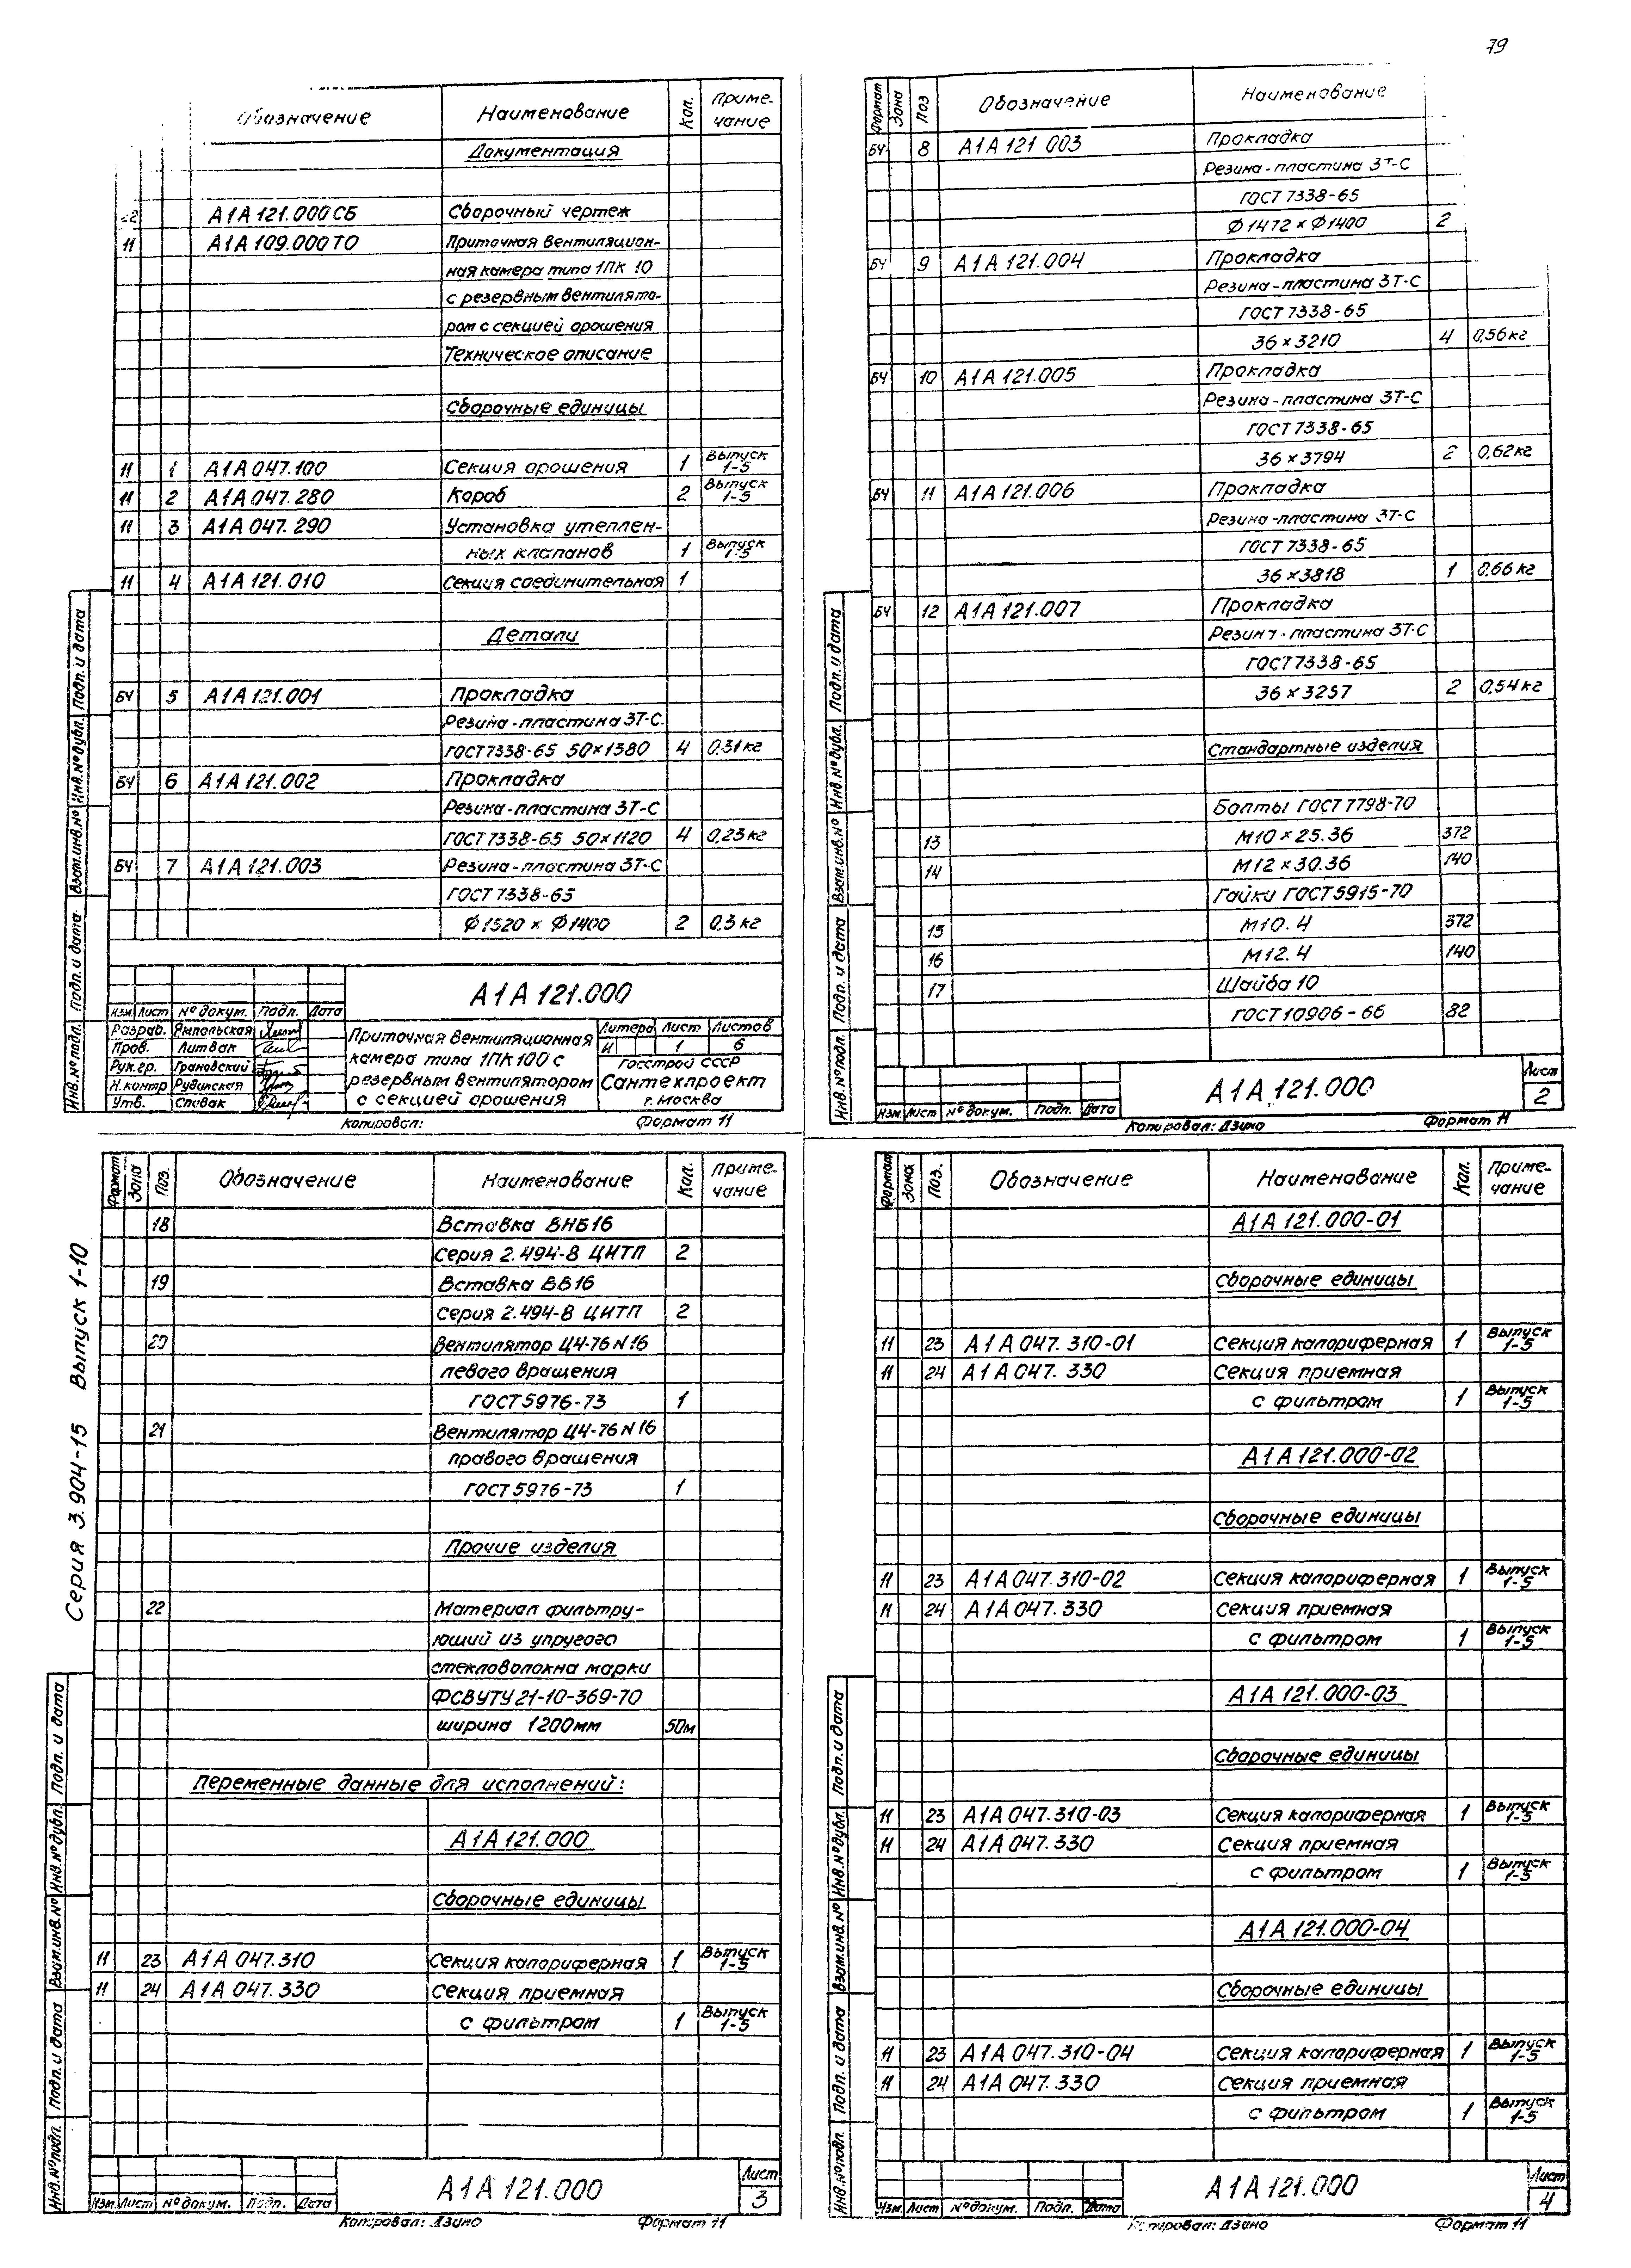 79
Обозначение Наименование Кол. Приме-
чание
Документация
А1А 121.000 СБ Сборочный чертеж
11 А1А 109.000 ТО Приточная вентиляцион-
ная камера типа 1ПК 10
с резервным вентилято-
ром с секцией орошения
Техническое описание
Сборочные единицы
11 1 А1А 047.100 Секция орошения 1 Выпуск 1-5
11 2 А1А 047.280 Короб 2 Выпуск 1-5
11 3 А1А 047.290 Установка утеплен-
ных клапанов 1 Выпуск 1-5
11 4 А1А 121.010 Секция соединительная 1
Детали
БЧ 5 А1А 121.001 Прокладка
Резина-пластина 3Т-С
ГОСТ 7338-65 50×1380 4 0,31кг
БЧ 6 А1А 121.002 Прокладка
Резина-пластина 3Т-С
ГОСТ 7338-65 50×1120 4 0,23кг
БЧ 7 А1А 121.003 Резина-пластина 3Т-С
ГОСТ 7338-65
Ф 1520 × Ф 1400 2 0,3 кг
А1А 121.000
Изм. Лист № докум. Подп. Дата
Разраб. Ямпольская
Пров. Литвак
Рук.гр. Грановский
Н.контр Рудинская
Утв. Спивак
Приточная вентиляционная
камера типа 1ПК 100 с
резервным вентилятором
с секцией орошения
Литера Лист Листов
И 1 6
Госстрой СССР
Сантехпроект
г. Москва
Копировал: Формат 11
Инв.№подл. Подп. и дата Взам.инв.№ Инв.№дубл. Подп. и дата
Формат Зона Поз Обозначение Наименование
БЧ 8 А1А 121 003 Прокладка
Резина-пластина 3Т-С
ГОСТ 7338-65
Ф 1472 × Ф 1400 2
БЧ 9 А1А 121.004 Прокладка
Резина-пластина 3Т-С
ГОСТ 7338-65
36 × 3210 4 0,56кг
БЧ 10 А1А 121.005 Прокладка
Резина-пластина 3Т-С
ГОСТ 7338-65
36 × 3794 2 0,62кг
БЧ 11 А1А 121.006 Прокладка
Резина-пластина 3Т-С
ГОСТ 7338-65
36 ×3818 1 0,66 кг
БЧ 12 А1А 121.007 Прокладка
Резина-пластина 3Т-С
ГОСТ 7338-65
36 × 3257 2 0,54 кг
Стандартные изделия
Болты ГОСТ 7798-70
13 М10 × 25.36 372
14 М12 × 30.36 140
Гайки ГОСТ 5915-70
15 М10.4 372
16 М12.4 140
17 Шайба 10
ГОСТ 10906-66 82
А1А 121.000 Лист
2
Изм. Лист № докум. Подп. Дата
Копировал: Дзино Формат 11
Инв.№подл. Подп. и дата Взам.инв.№ Инв.№дубл. Подп. и дата
Серия 3.904-15 Выпуск 1-10
Формат Зона Поз. Обозначение Наименование Кол. Приме-
чание
18 Вставка ВНБ16
Серия 2.494-8 ЦИТП 2
19 Вставка ВВ16
Серия 2.494-8 ЦИТП 2
20 Вентилятор Ц4-76 N16
левого вращения
ГОСТ 5976-73 1
21 Вентилятор Ц4-76 N16
правого вращения
ГОСТ 5976-73 1
Прочие изделия
22 Материал фильтру-
ющий из упругого
стекловолокна марки
ФСВУ ТУ 21-10-369-70
ширина 1200мм 50м
Переменные данные для исполнений:
А1А 121.000
Сборочные единицы
11 23 А1А 047.310 Секция калориферная 1 Выпуск 1-5
11 24 А1А 047.330 Секция приемная
с фильтром 1 Выпуск 1-5
А1А 121.000 Лист
3
Изм. Лист № докум. Подп. Дата
Копировал: Дзино Формат 11
Инв.№подл. Подп. и дата Взам.инв.№ Инв.№дубл. Подп. и дата
Формат Зона Поз. Обозначение Наименование Кол. Приме-
чание
А1А 121.000-01
Сборочные единицы
11 23 А1А 047.310-01 Секция калориферная 1 Выпуск 1-5
11 24 А1А 047.330 Секция приемная
с фильтром 1 Выпуск 1-5
А1А 121.000-02
Сборочные единицы
11 23 А1А 047.310-02 Секция калориферная 1 Выпуск 1-5
11 24 А1А 047.330 Секция приемная
с фильтром 1 Выпуск 1-5
А1А 121.000-03
Сборочные единицы
11 23 А1А 047.310-03 Секция калориферная 1 Выпуск 1-5
11 24 А1А 047.330 Секция приемная
с фильтром 1 Выпуск 1-5
А1А 121.000-04
Сборочные единицы
11 23 А1А 047.310-04 Секция калориферная 1 Выпуск 1-5
11 24 А1А 047.330 Секция приемная
с фильтром 1 Выпуск 1-5
А1А 121.000 Лист
4
Изм. Лист № докум. Подп. Дата
Копировал: Дзино Формат 11
Инв.№подл. Подп. и дата Взам.инв.№ Инв.№дубл. Подп. и дата